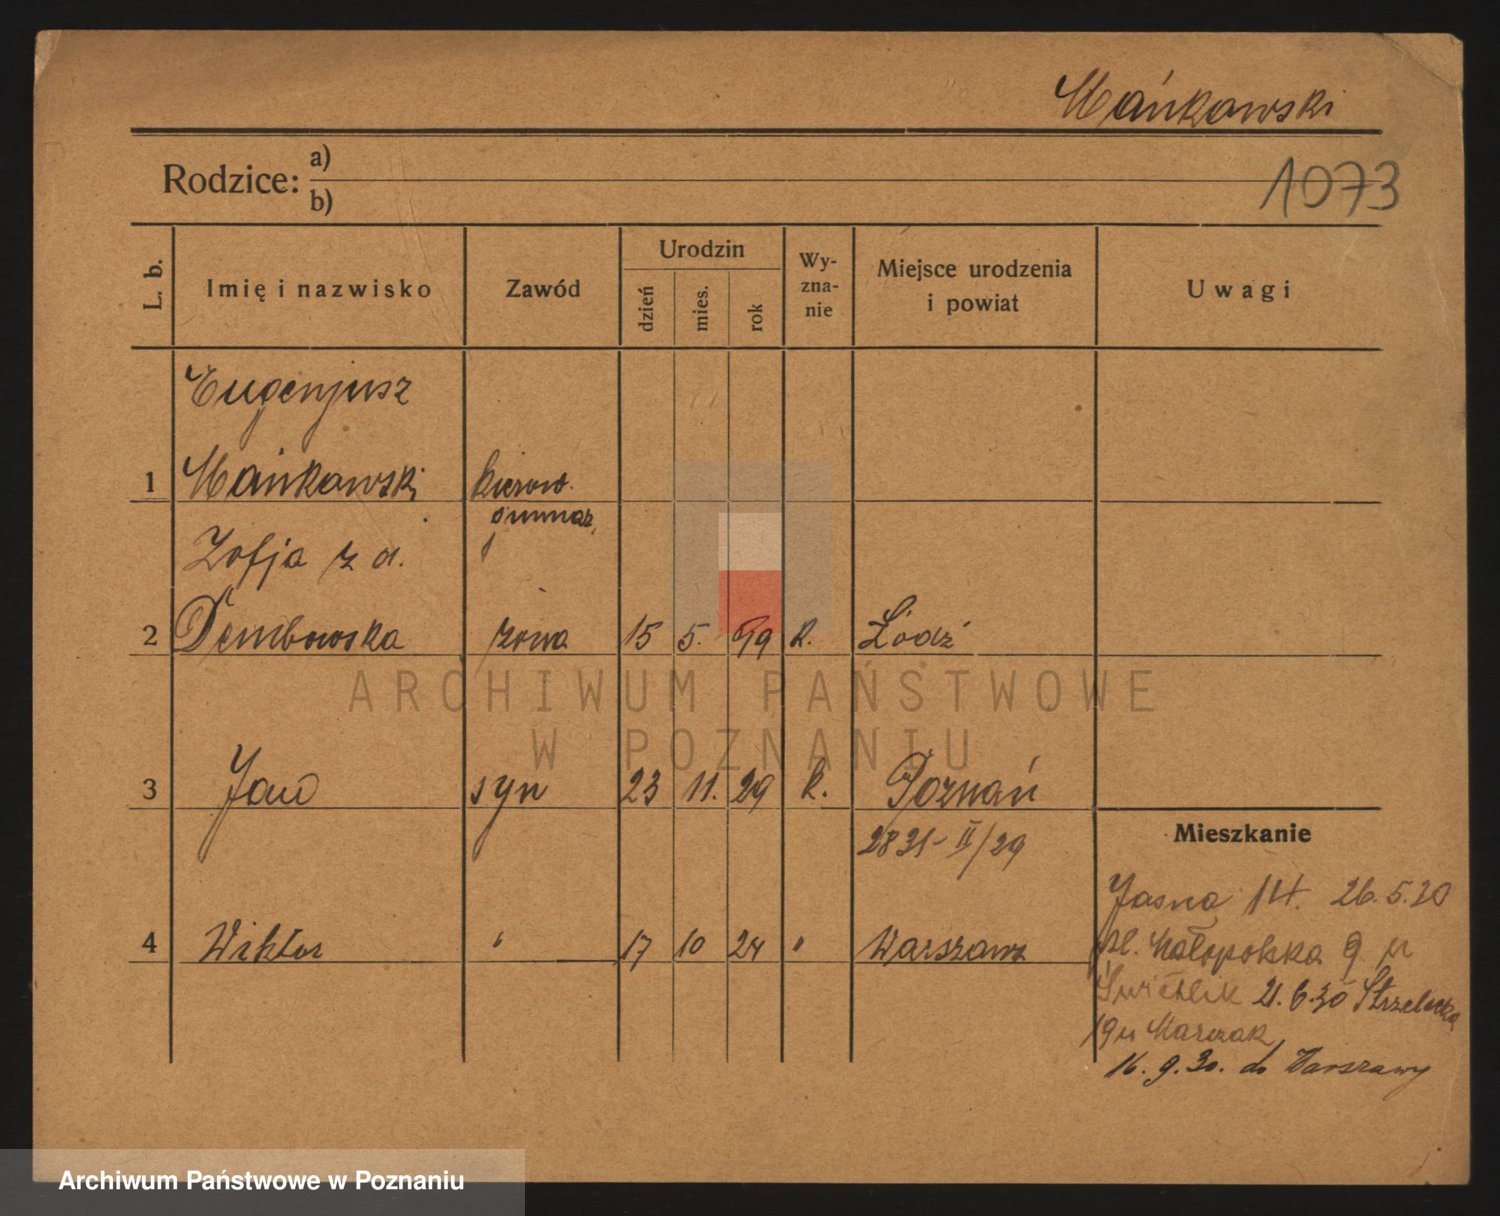 Mańkowski
Rodzice: a)
b)
1073
L. b.
Imię i nazwisko
Zawód
Urodzin
dzień
mies.
rok
Wy-
zna-
nie
Miejsce urodzenia
i powiat
Uwagi
Eugenjusz
1 Mańkowski kierow.
gimnaz.
Zofja z d.
2 Dembowska żona 15 5. 99 k. Łódź
3 Jan syn 23 11. 29 k. Poznań
2831-II/29
Mieszkanie
4 Wiktor " 17 10 24 " Warszawa
Jasna 14. 26.5.30
Małopolska 9 u
21.6.30 Strzelecka
19 u Marczak
16.9.30. do Warszawy
ARCHIWUM PAŃSTWOWE
W POZNANIU
Archiwum Państwowe w Poznaniu